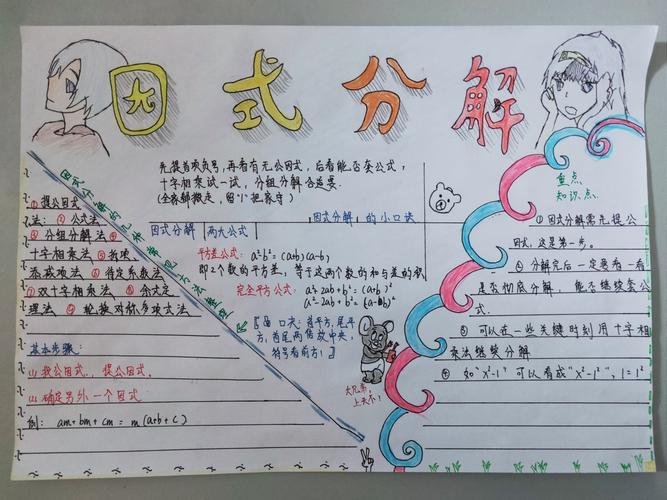 因式分解
先提首项负号,再看有无公因式,后看能否套公式,
十字相乘试一试,分组分解合适要.
(全家都搬走,留"1"把家守)
因式分解的小口诀
因式分解的几种常见方法整理
① 提公因式
法: ② 公式法
③ 分组分解法 ④
十字相乘法 ⑤ 拆项
添减项法 ⑥ 待定系数法
⑦ 双十字相乘法 ⑧ 余式定
理法 ⑨ 轮换对称多项式法
基本步骤:
(1) 找公因式, 提公因式.
(2) 确定另外一个因式.
例: am+bm+cm = m(a+b+c)
因式分解 两大公式
平方差公式: a²-b²=(a+b)(a-b)
即2个数的平方差, 等于这两个数的和与差的积
完全平方公式: a²+2ab+b²=(a+b)²
a²-2ab+b²=(a-b)²
口决: 首平方,尾平
方, 首尾两倍放中央,
符号看前方!
大兄弟,
上天不!
重点
知识点
① 因式分解需先提公
因式, 这是第一步。
② 分解完后一定要看一看
是否彻底分解, 能否继续套公
式.
③ 可以在一些关键时刻用十字相
乘法继续分解
④ 如"x²-1"可以看成"x²-1²", 1=1²